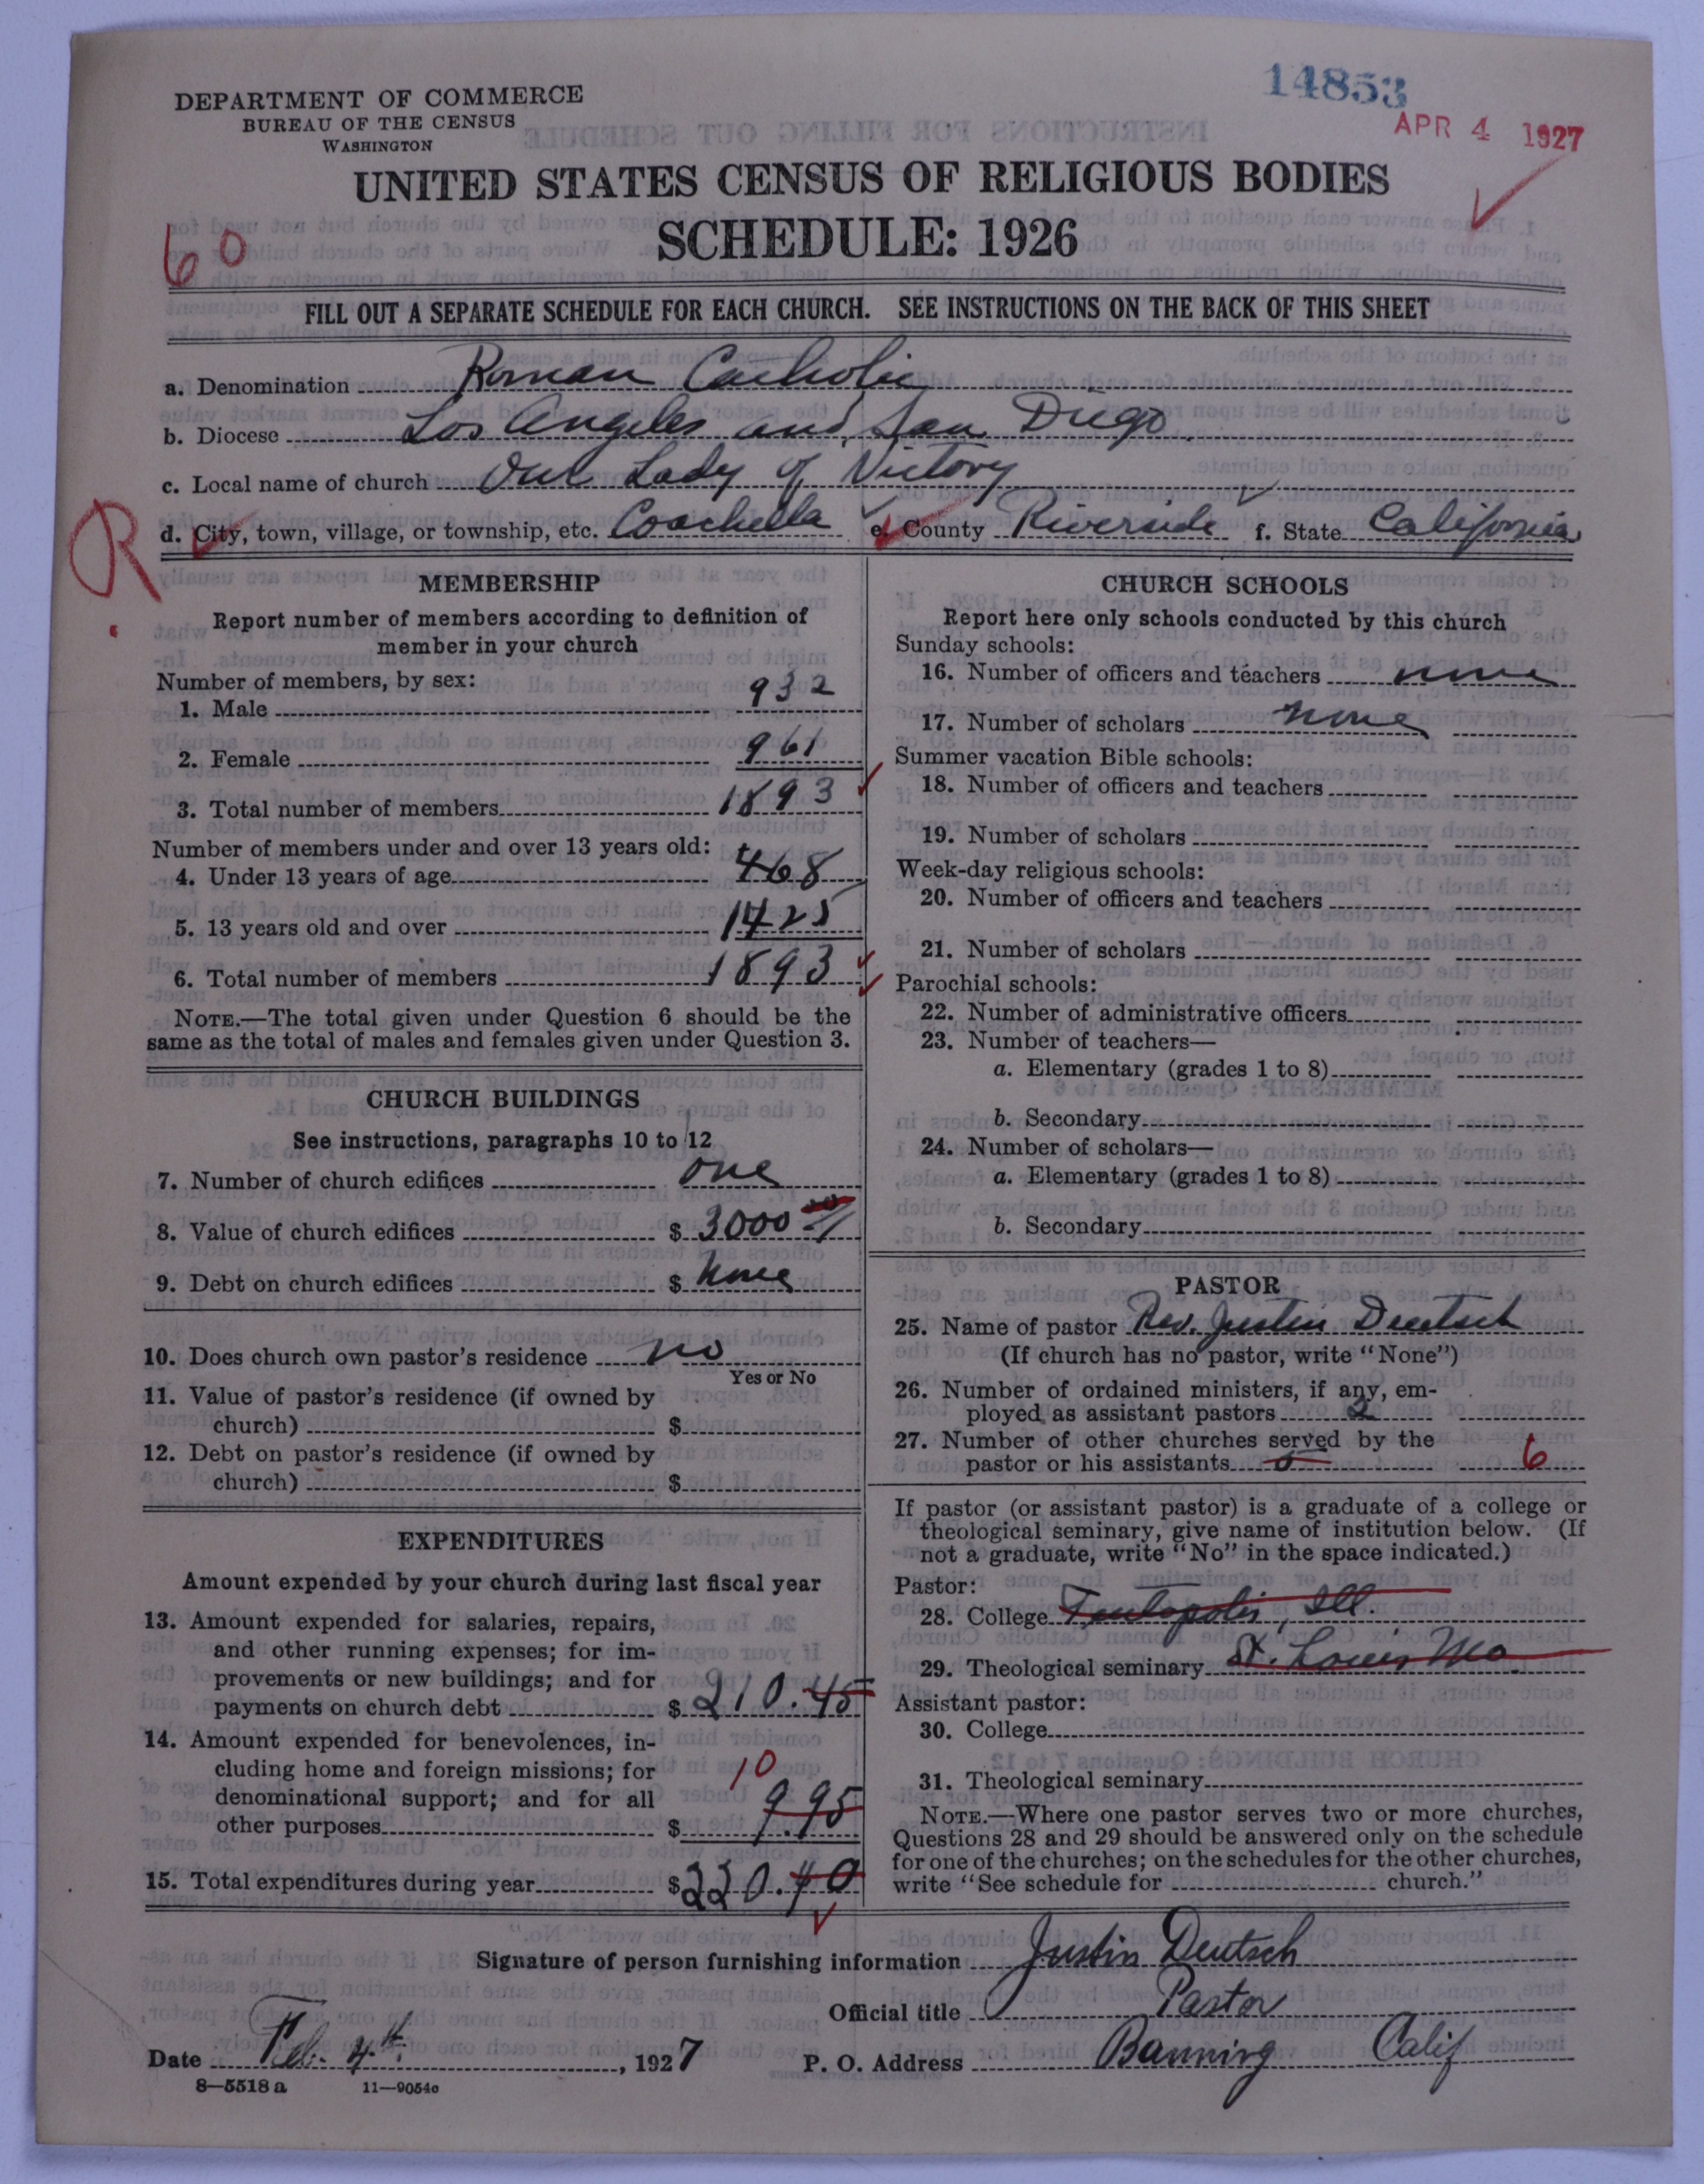 14853
APR 4 1927
DEPARTMENT OF COMMERCE
BUREAU OF THE CENSUS
WASHINGTON
UNITED STATES CENSUS OF RELIGIOUS BODIES
SCHEDULE: 1926
60
FILL OUT A SEPARATE SCHEDULE FOR EACH CHURCH. SEE INSTRUCTIONS ON THE BACK OF THIS SHEET
a. Denomination Roman Catholic
b. Diocese Los Angeles and San Diego
c. Local name of church Our Lady of Victory
R
d. City, town, village, or township, etc. Coachella e. County Riverside f. State California
MEMBERSHIP
Report number of members according to definition of
member in your church
Number of members, by sex:
1. Male 932
2. Female 961
3. Total number of members 1893
Number of members under and over 13 years old:
4. Under 13 years of age 468
5. 13 years old and over 1425
6. Total number of members 1893
NOTE.—The total given under Question 6 should be the
same as the total of males and females given under Question 3.
CHURCH BUILDINGS
See instructions, paragraphs 10 to 12
7. Number of church edifices one
8. Value of church edifices $ 3000
9. Debt on church edifices $ none
10. Does church own pastor's residence no
Yes or No
11. Value of pastor's residence (if owned by
church) $
12. Debt on pastor's residence (if owned by
church) $
EXPENDITURES
Amount expended by your church during last fiscal year
13. Amount expended for salaries, repairs,
and other running expenses; for im-
provements or new buildings; and for
payments on church debt $ 210.45
14. Amount expended for benevolences, in-
cluding home and foreign missions; for
denominational support; and for all 10
other purposes $ 9.95
15. Total expenditures during year $220.40
CHURCH SCHOOLS
Report here only schools conducted by this church
Sunday schools:
16. Number of officers and teachers none
17. Number of scholars none
Summer vacation Bible schools:
18. Number of officers and teachers
19. Number of scholars
Week-day religious schools:
20. Number of officers and teachers
21. Number of scholars
Parochial schools:
22. Number of administrative officers
23. Number of teachers—
a. Elementary (grades 1 to 8)
b. Secondary
24. Number of scholars—
a. Elementary (grades 1 to 8)
b. Secondary
PASTOR
25. Name of pastor Rev. Justin Deutsch
(If church has no pastor, write "None")
26. Number of ordained ministers, if any, em-
ployed as assistant pastors 2
27. Number of other churches served by the
pastor or his assistants 6
If pastor (or assistant pastor) is a graduate of a college or
theological seminary, give name of institution below. (If
not a graduate, write "No" in the space indicated.)
Pastor:
28. College Teutopolis, Ill.
29. Theological seminary St. Louis Mo.
Assistant pastor:
30. College
31. Theological seminary
NOTE.—Where one pastor serves two or more churches,
Questions 28 and 29 should be answered only on the schedule
for one of the churches; on the schedules for the other churches,
write "See schedule for church."
Signature of person furnishing information Justin Deutsch
Official title Pastor
Date Feb. 4th, 1927 P. O. Address Banning Calif
8—5518 a 11—9054c